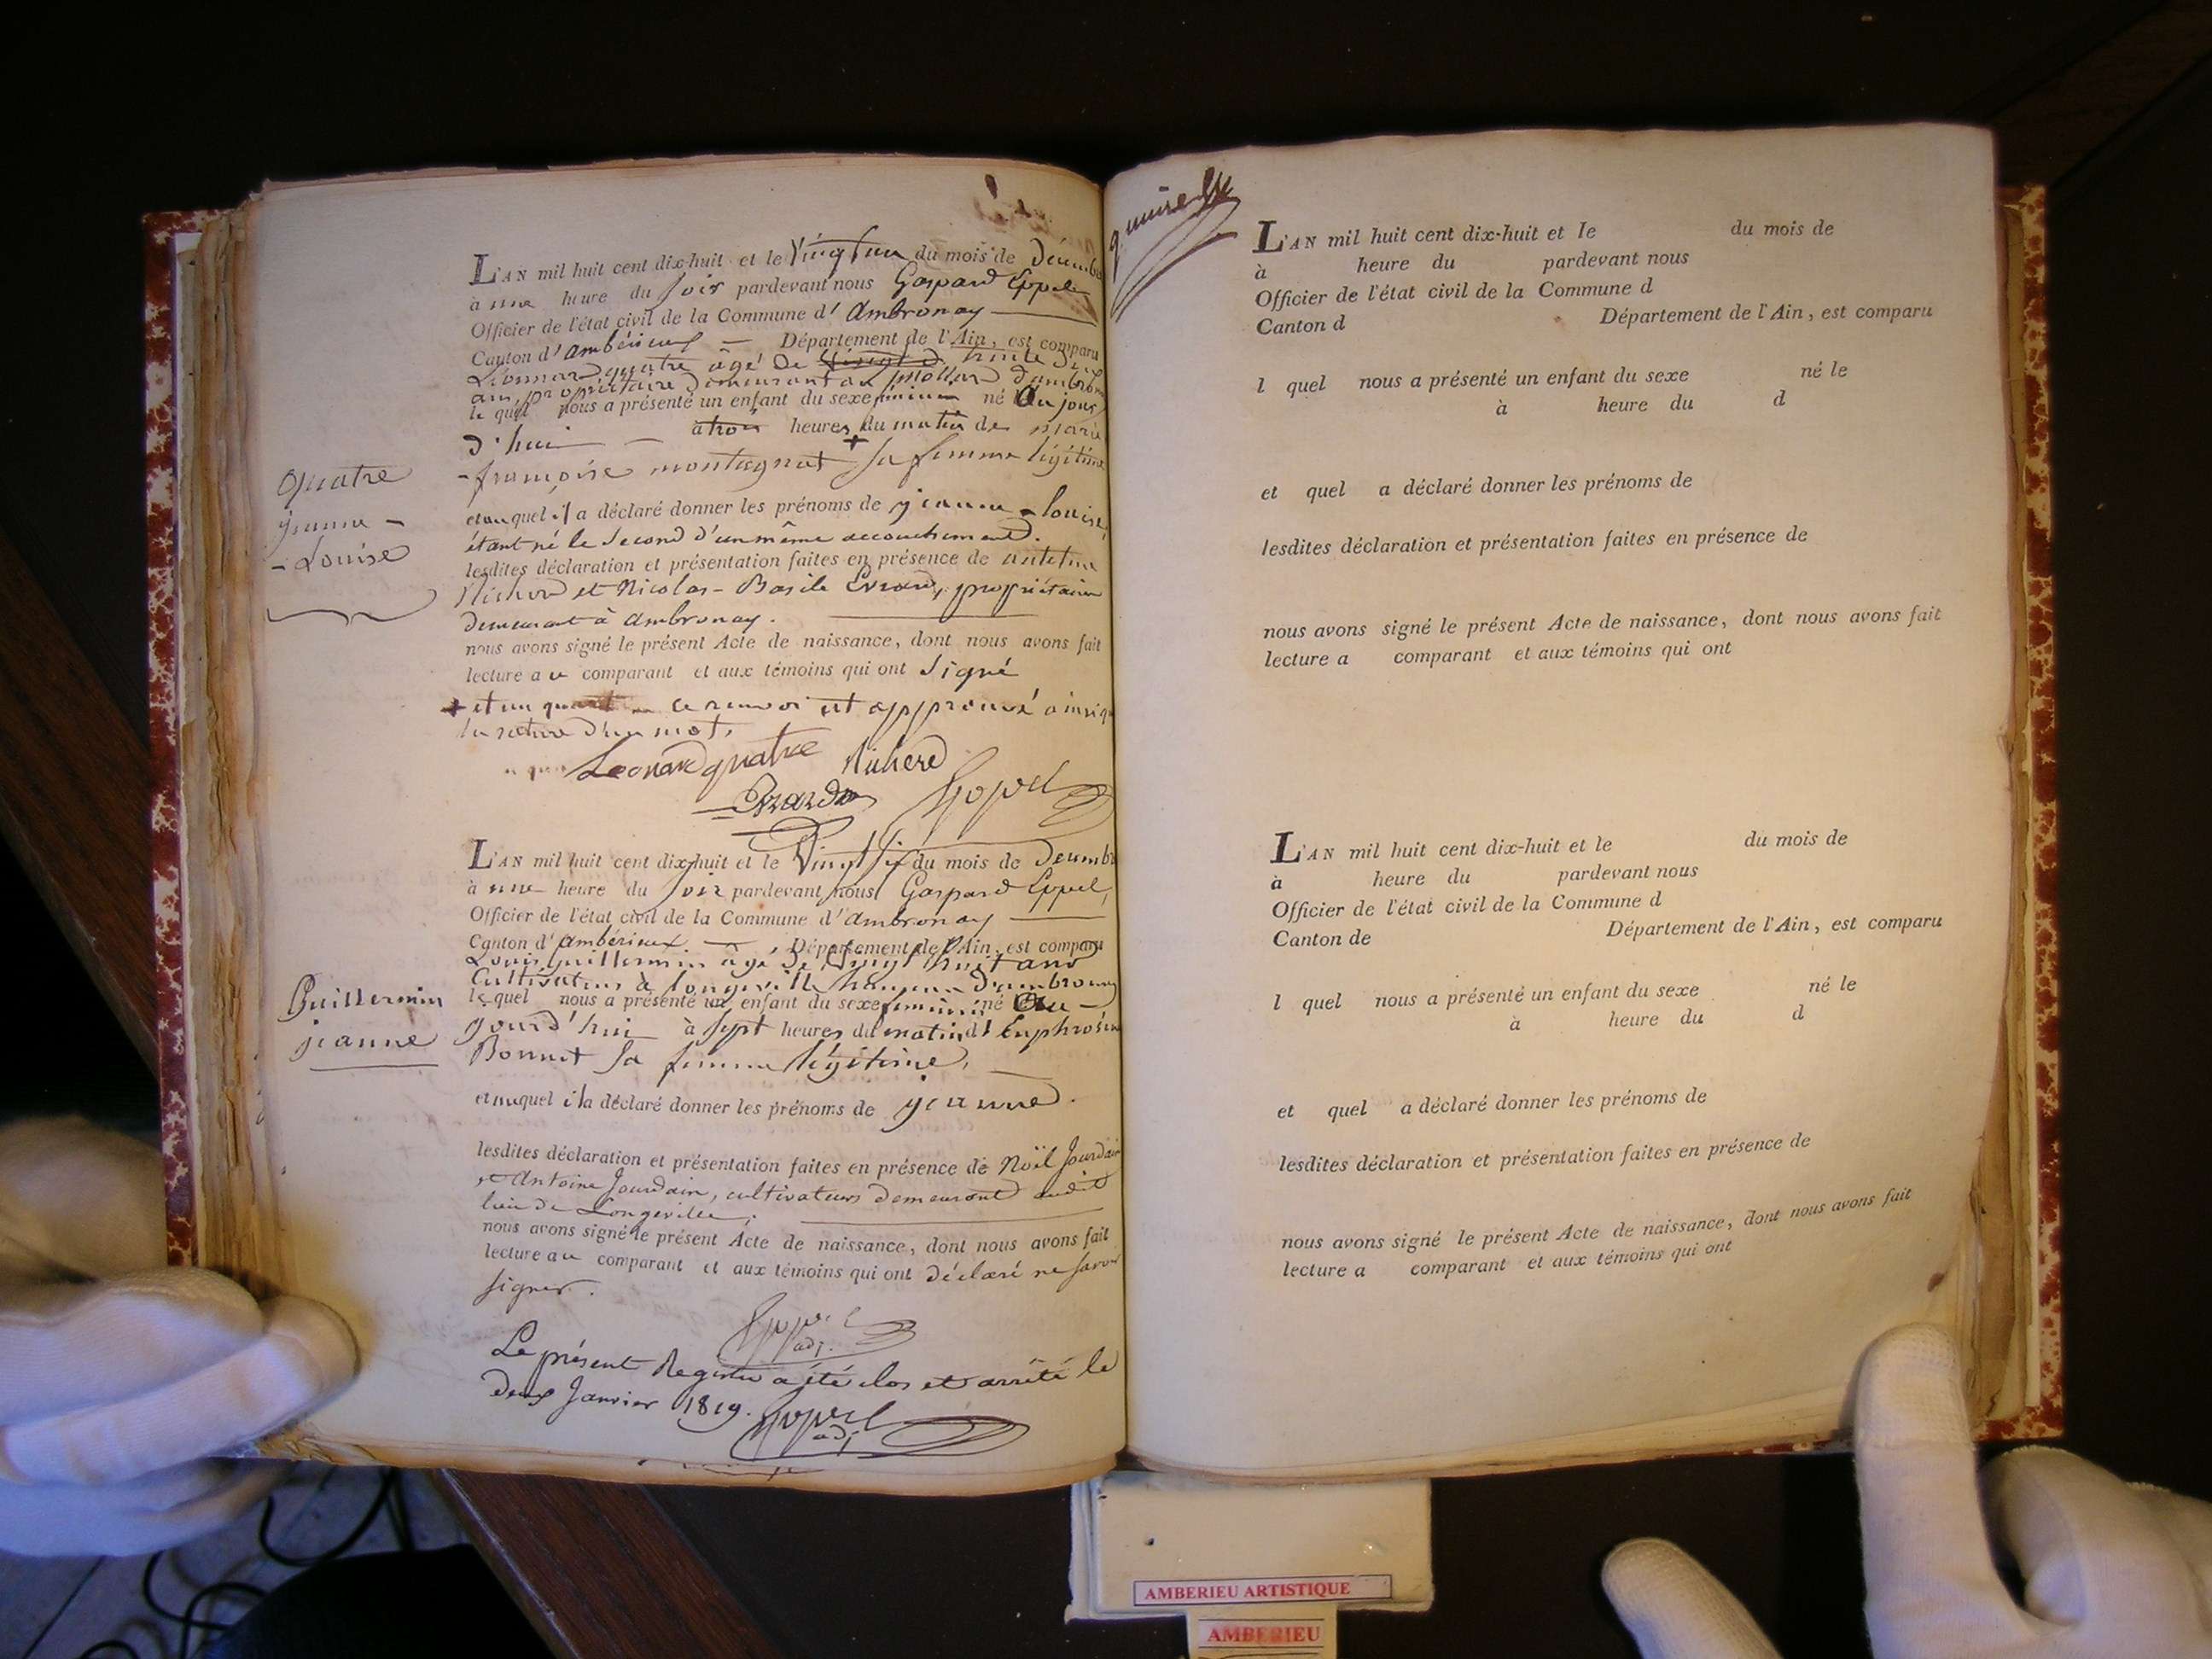 Quatre
jeanne -
- Louise
L'AN mil huit cent dix-huit et le Vingt un du mois de Décembre
à une heure du Soir pardevant nous Gaspard Eppel
Officier de l'état civil de la Commune d' Ambronay
Canton d' Ambérieux — Département de l'Ain, est comparu
Léonnard quatre âgé de trente deux
ans, propriétaire demeurant au mollard d'ambro
le quel nous a présenté un enfant du sexe né Au jour
d'hui — à trois heures du matin de Marie
- françoise montagnat + sa femme légitime
et auquel il a déclaré donner les prénoms de jeanne - louise,
étant né le Second d'un même accouchement.
lesdites déclaration et présentation faites en présence de antelme
et Nicolas - Basile Evrard, propriétaires
demeurant à Ambronay.
nous avons signé le présent Acte de naissance, dont nous avons fait
lecture au comparant et aux témoins qui ont Signé
+ et un quart ce renvoi est approuvé ainsi q
la rature d'un mot.
Leonard quatre
Evrard Eppel
Guillermin
jeanne
L'AN mil huit cent dix-huit et le Vingt Six du mois de Decembre
à une heure du Soir pardevant nous Gaspard Eppel,
Officier de l'état civil de la Commune d' Ambronay
Canton d' Ambérieux. — , Département de l'Ain, est comparu
Louis Guillermin âgé de Vingt huit ans
Cultivateur à longeville hameau d'ambronay
le quel nous a présenté un enfant du sexe féminin né Au -
jourd'hui à Sept heures du matin d' Euphrosine
Bonnet Sa femme légitime,
et auquel il a déclaré donner les prénoms de jeanne.
lesdites déclaration et présentation faites en présence de Noël Jourdain
et Antoine Jourdain, cultivateurs demeurant audit
lieu de Longeville.
nous avons signé le présent Acte de naissance, dont nous avons fait
lecture au comparant et aux témoins qui ont déclaré ne savoir
signer.
Eppel
adj.
Le présent Registre a été clos et arrêté le
deux Janvier 1819.
Eppel
adj
L'AN mil huit cent dix-huit et le du mois de
à heure du pardevant nous
Officier de l'état civil de la Commune d
Canton d Département de l'Ain, est comparu
l quel nous a présenté un enfant du sexe né le
à heure du d
et quel a déclaré donner les prénoms de
lesdites déclaration et présentation faites en présence de
nous avons signé le présent Acte de naissance, dont nous avons fait
lecture a comparant et aux témoins qui ont
L'AN mil huit cent dix-huit et le du mois de
à heure du pardevant nous
Officier de l'état civil de la Commune d
Canton de Département de l'Ain, est comparu
l quel nous a présenté un enfant du sexe né le
à heure du d
et quel a déclaré donner les prénoms de
lesdites déclaration et présentation faites en présence de
nous avons signé le présent Acte de naissance, dont nous avons fait
lecture a comparant et aux témoins qui ont
AMBERIEU ARTISTIQUE
AMBERIEU